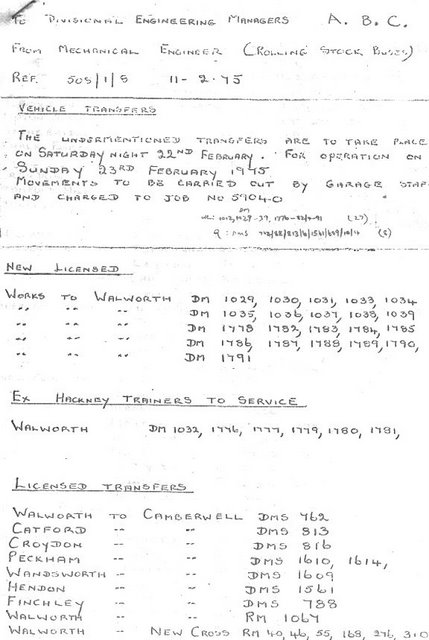 To Divisional Engineering Managers A. B. C.
From Mechanical Engineer (Rolling Stock Buses)
Ref. 505/1/8 11-2-75
Vehicle Transfers
The undermentioned transfers are to take place
on Saturday night 22nd February. For operation on
Sunday 23rd February 1975
Movements to be carried out by garage staff
and charged to Job No 5904-0
New Licensed
Works to Walworth DM 1029, 1030, 1031, 1033, 1034
" " " DM 1035, 1036, 1037, 1038, 1039
" " " DM 1778 1782, 1783, 1784, 1785
" " " DM 1786, 1787, 1788, 1789, 1790,
" " " DM 1791
Ex Hackney Trainers to Service
Walworth DM 1032, 1776, 1777, 1779, 1780, 1781,
Licensed Transfers
Walworth to Camberwell DMS 762
Catford " " DMS 813
Croydon " " DMS 816
Peckham " " DMS 1610, 1614,
Wandsworth " " DMS 1609
Hendon " " DMS 1561
Finchley " " DMS 788
Walworth " " RM 1067
Walworth " New Cross RM 40, 46, 55, 168, 276, 310